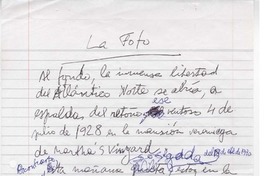 La Foto
Al fondo, la inmensa libertad
del Atlántico Norte se abría, a
espaldas del retoño ese ventoso 4 de
julio de 1928 en la mansión veraniega
de Martha's Vinyard
esta mañana en la